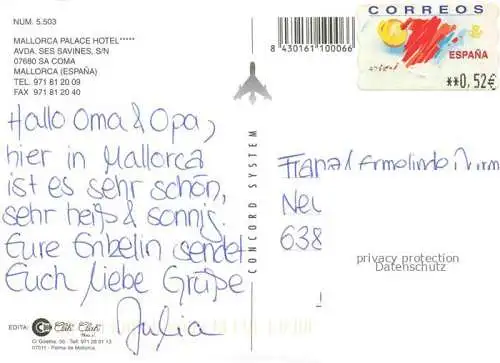 NUM. 5.503
MALLORCA PALACE HOTEL*****
AVDA. SES SAVINES, S/N
07680 SA COMA
MALLORCA (ESPAÑA)
TEL. 971 81 20 09
FAX 971 81 20 40
8 430161 100066
CORREOS
ESPAÑA
**0,52€
Hallo Oma & Opa,
hier in Mallorca
ist es sehr schön,
sehr heiß & sonnig.
Eure Enkelin sendet
Euch liebe Grüße
Julia
CONCORD SYSTEM
Franz & Ermelinde
Neu
638
privacy protection
Datenschutz
EDITA:
Clik Clak
C/ Goethe, 36 - Tel. 971 28 01 13
07011 - Palma de Mallorca.